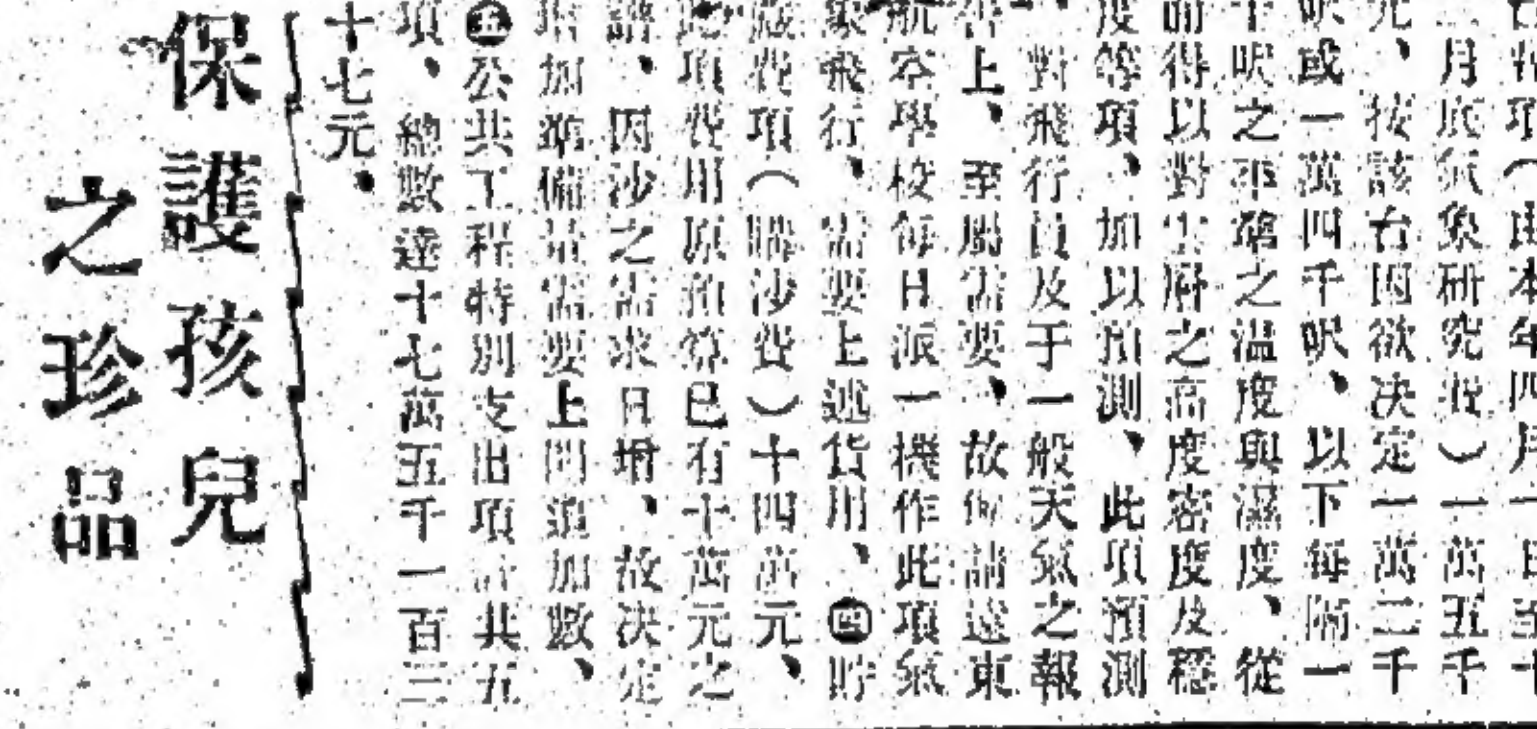 台費項（由本年四月一日至十
二月底氣象研究費）一萬五千
元、按該台因欲决定一萬二千
呎或一萬四千呎、以下每隔一
千呎之平穩之温度與濕度、從
而得以對雲層之高度密度及穩
度等項、加以預測、此項預測
、對飛行員及于一般天氣之報
上、至屬需要、故向請遠東
航空學校每日派一機作此項氣
象飛行、需要上述貨用、㊃貯
藏費項（購沙費）十四萬元、
此項費用原預算已有十萬元之
譜、因沙之需求日增、故决定
增加準備於需要上問追加數、
㊄公共工程特别支出項計共五
項、總數達十七萬五千一百三
十七元、
保護孩兒
之珍品